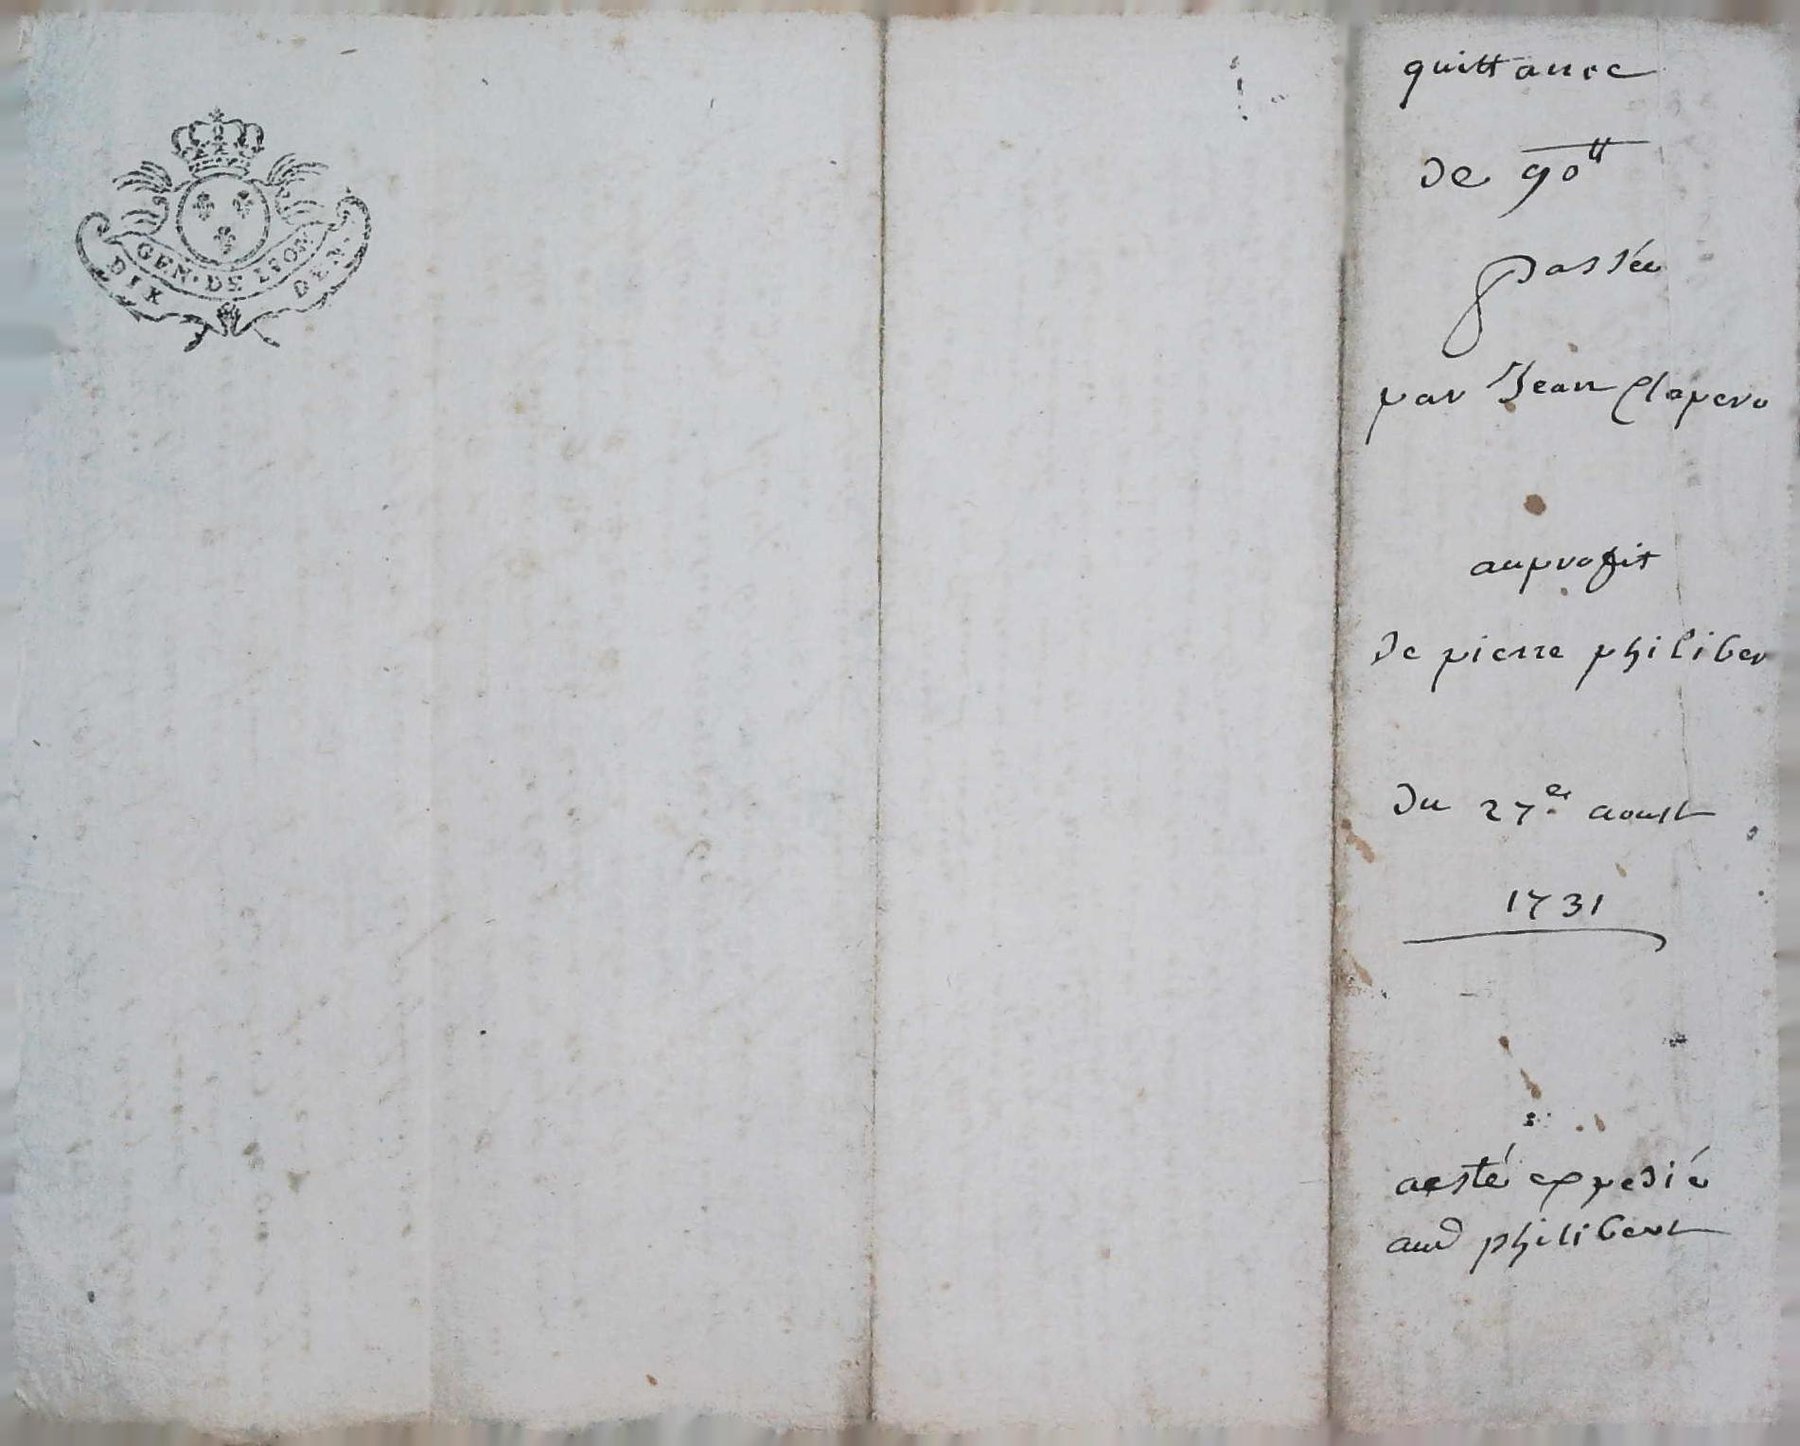 GEN. DE LYON
DIX DEN.
quittance
de 90tt
passée
par Jean Clapero
auproffit
de pierre philiber
du 27e aoust
1731
aesté expedié
aud philibert